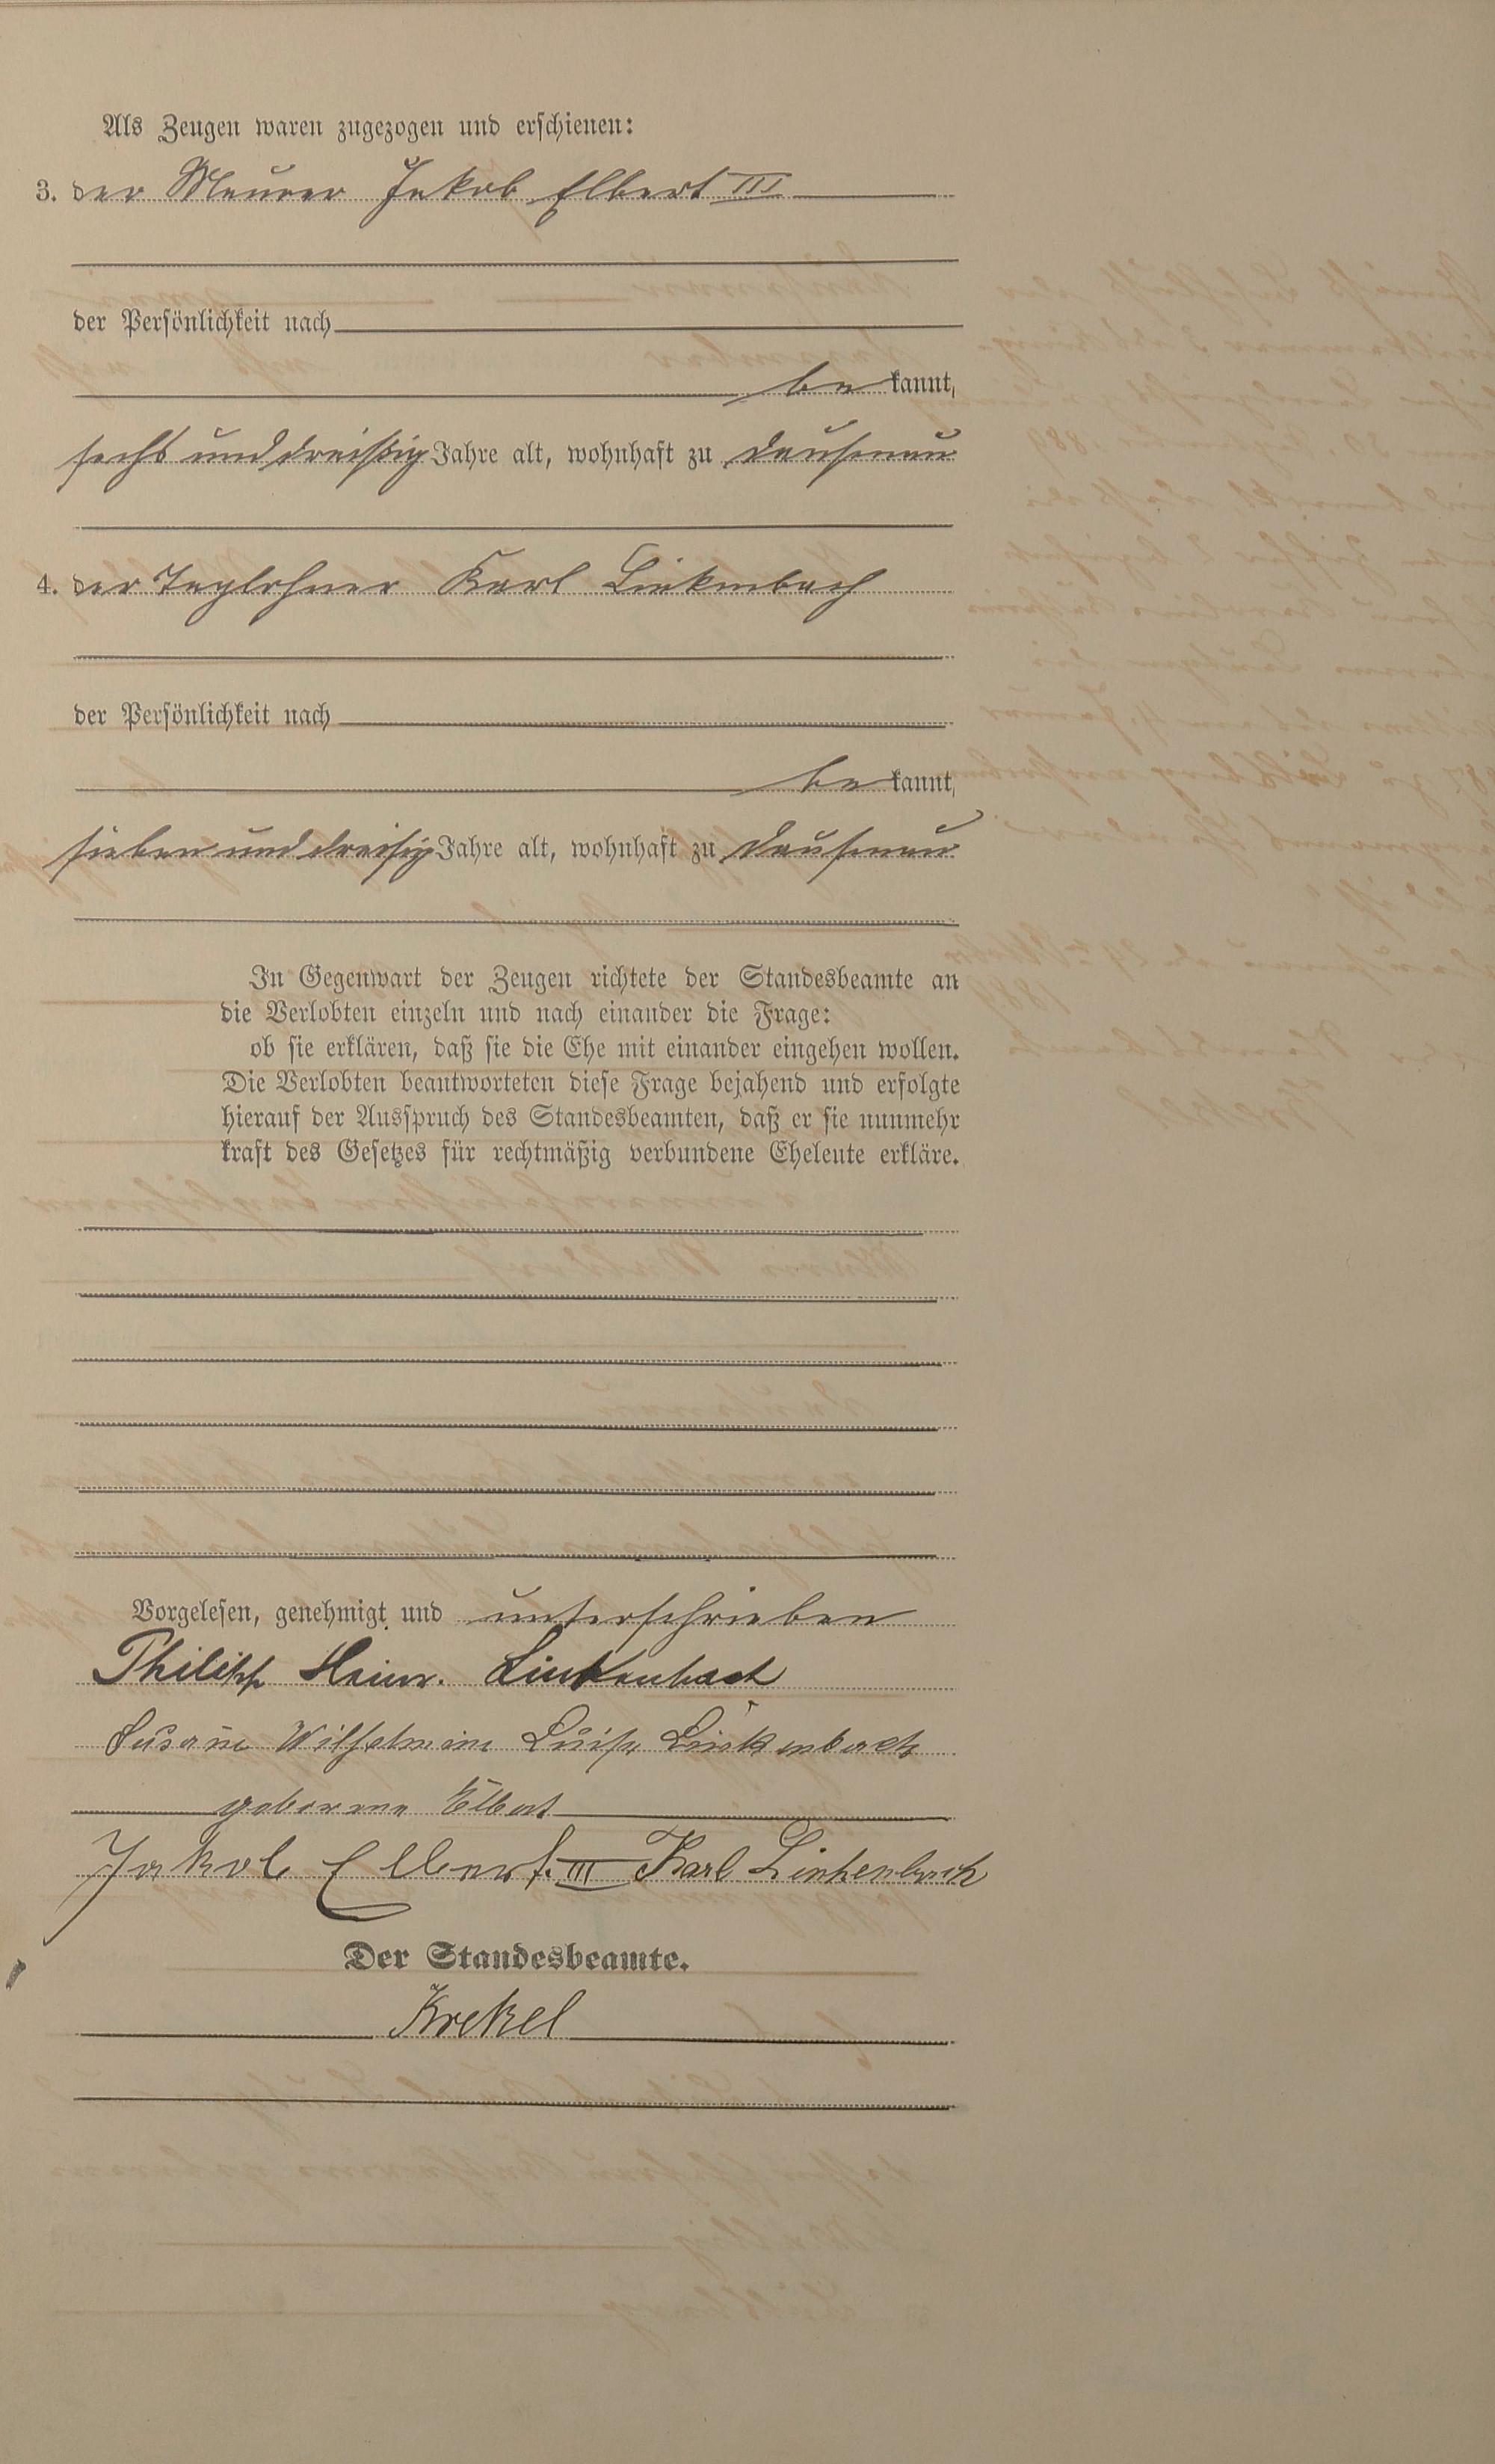 Als Zeugen waren zugezogen und erschienen:
3. der Maurer Jakob Elbert III
der Persönlichkeit nach
be kannt,
sechs und dreißig Jahre alt, wohnhaft zu Dausenau
4. der Taglöhner Karl Linkenbach
der Persönlichkeit nach
be kannt,
sieben und dreißig Jahre alt, wohnhaft zu Dausenau
In Gegenwart der Zeugen richtete der Standesbeamte an
die Verlobten einzeln und nach einander die Frage:
ob sie erklären, daß sie die Ehe mit einander eingehen wollen.
Die Verlobten beantworteten diese Frage bejahend und erfolgte
hierauf der Ausspruch des Standesbeamten, daß er sie nunmehr
kraft des Gesetzes für rechtmäßig verbundene Eheleute erkläre.
Vorgelesen, genehmigt und unterschrieben
Philipp Heinr. Linkenbach
Susane Wilhelmine Luise Linkenbach
geborene Elbert
Jakob Elbert III Karl Linkenbach
Der Standesbeamte.
Krekel